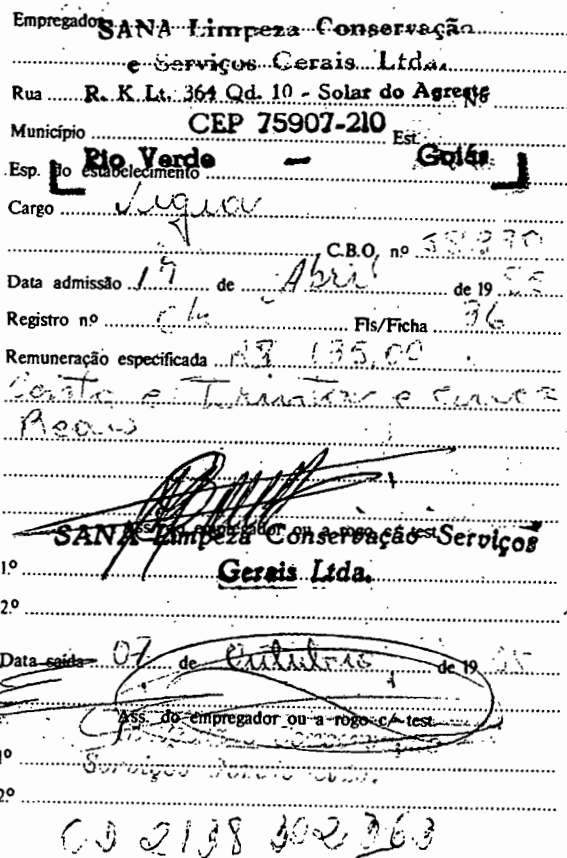 Empregador SANA Limpeza Conservação
e Serviços Gerais Ltda.
Rua R. K. Lt. 364 Qd. 10 - Solar do Agreste Nº
Município CEP 75907-210 Est.
Rio Verde — Goiás
Esp. do estabelecimento
Cargo
C.B.O. nº
Data admissão 17 de Abril de 19
Registro nº Fls/Ficha 36
Remuneração especificada R$ 135,00
Cento e Trinta e cinco
Reais
Ass. do empregador ou a rogo c/ test.
SANA Limpeza Conservação Serviços
Gerais Ltda.
1º
2º
Data saída 07 de Outubro de 19
Ass. do empregador ou a rogo c/ test.
Serviços Gerais Ltda.
1º
2º
CD 2138 302 363